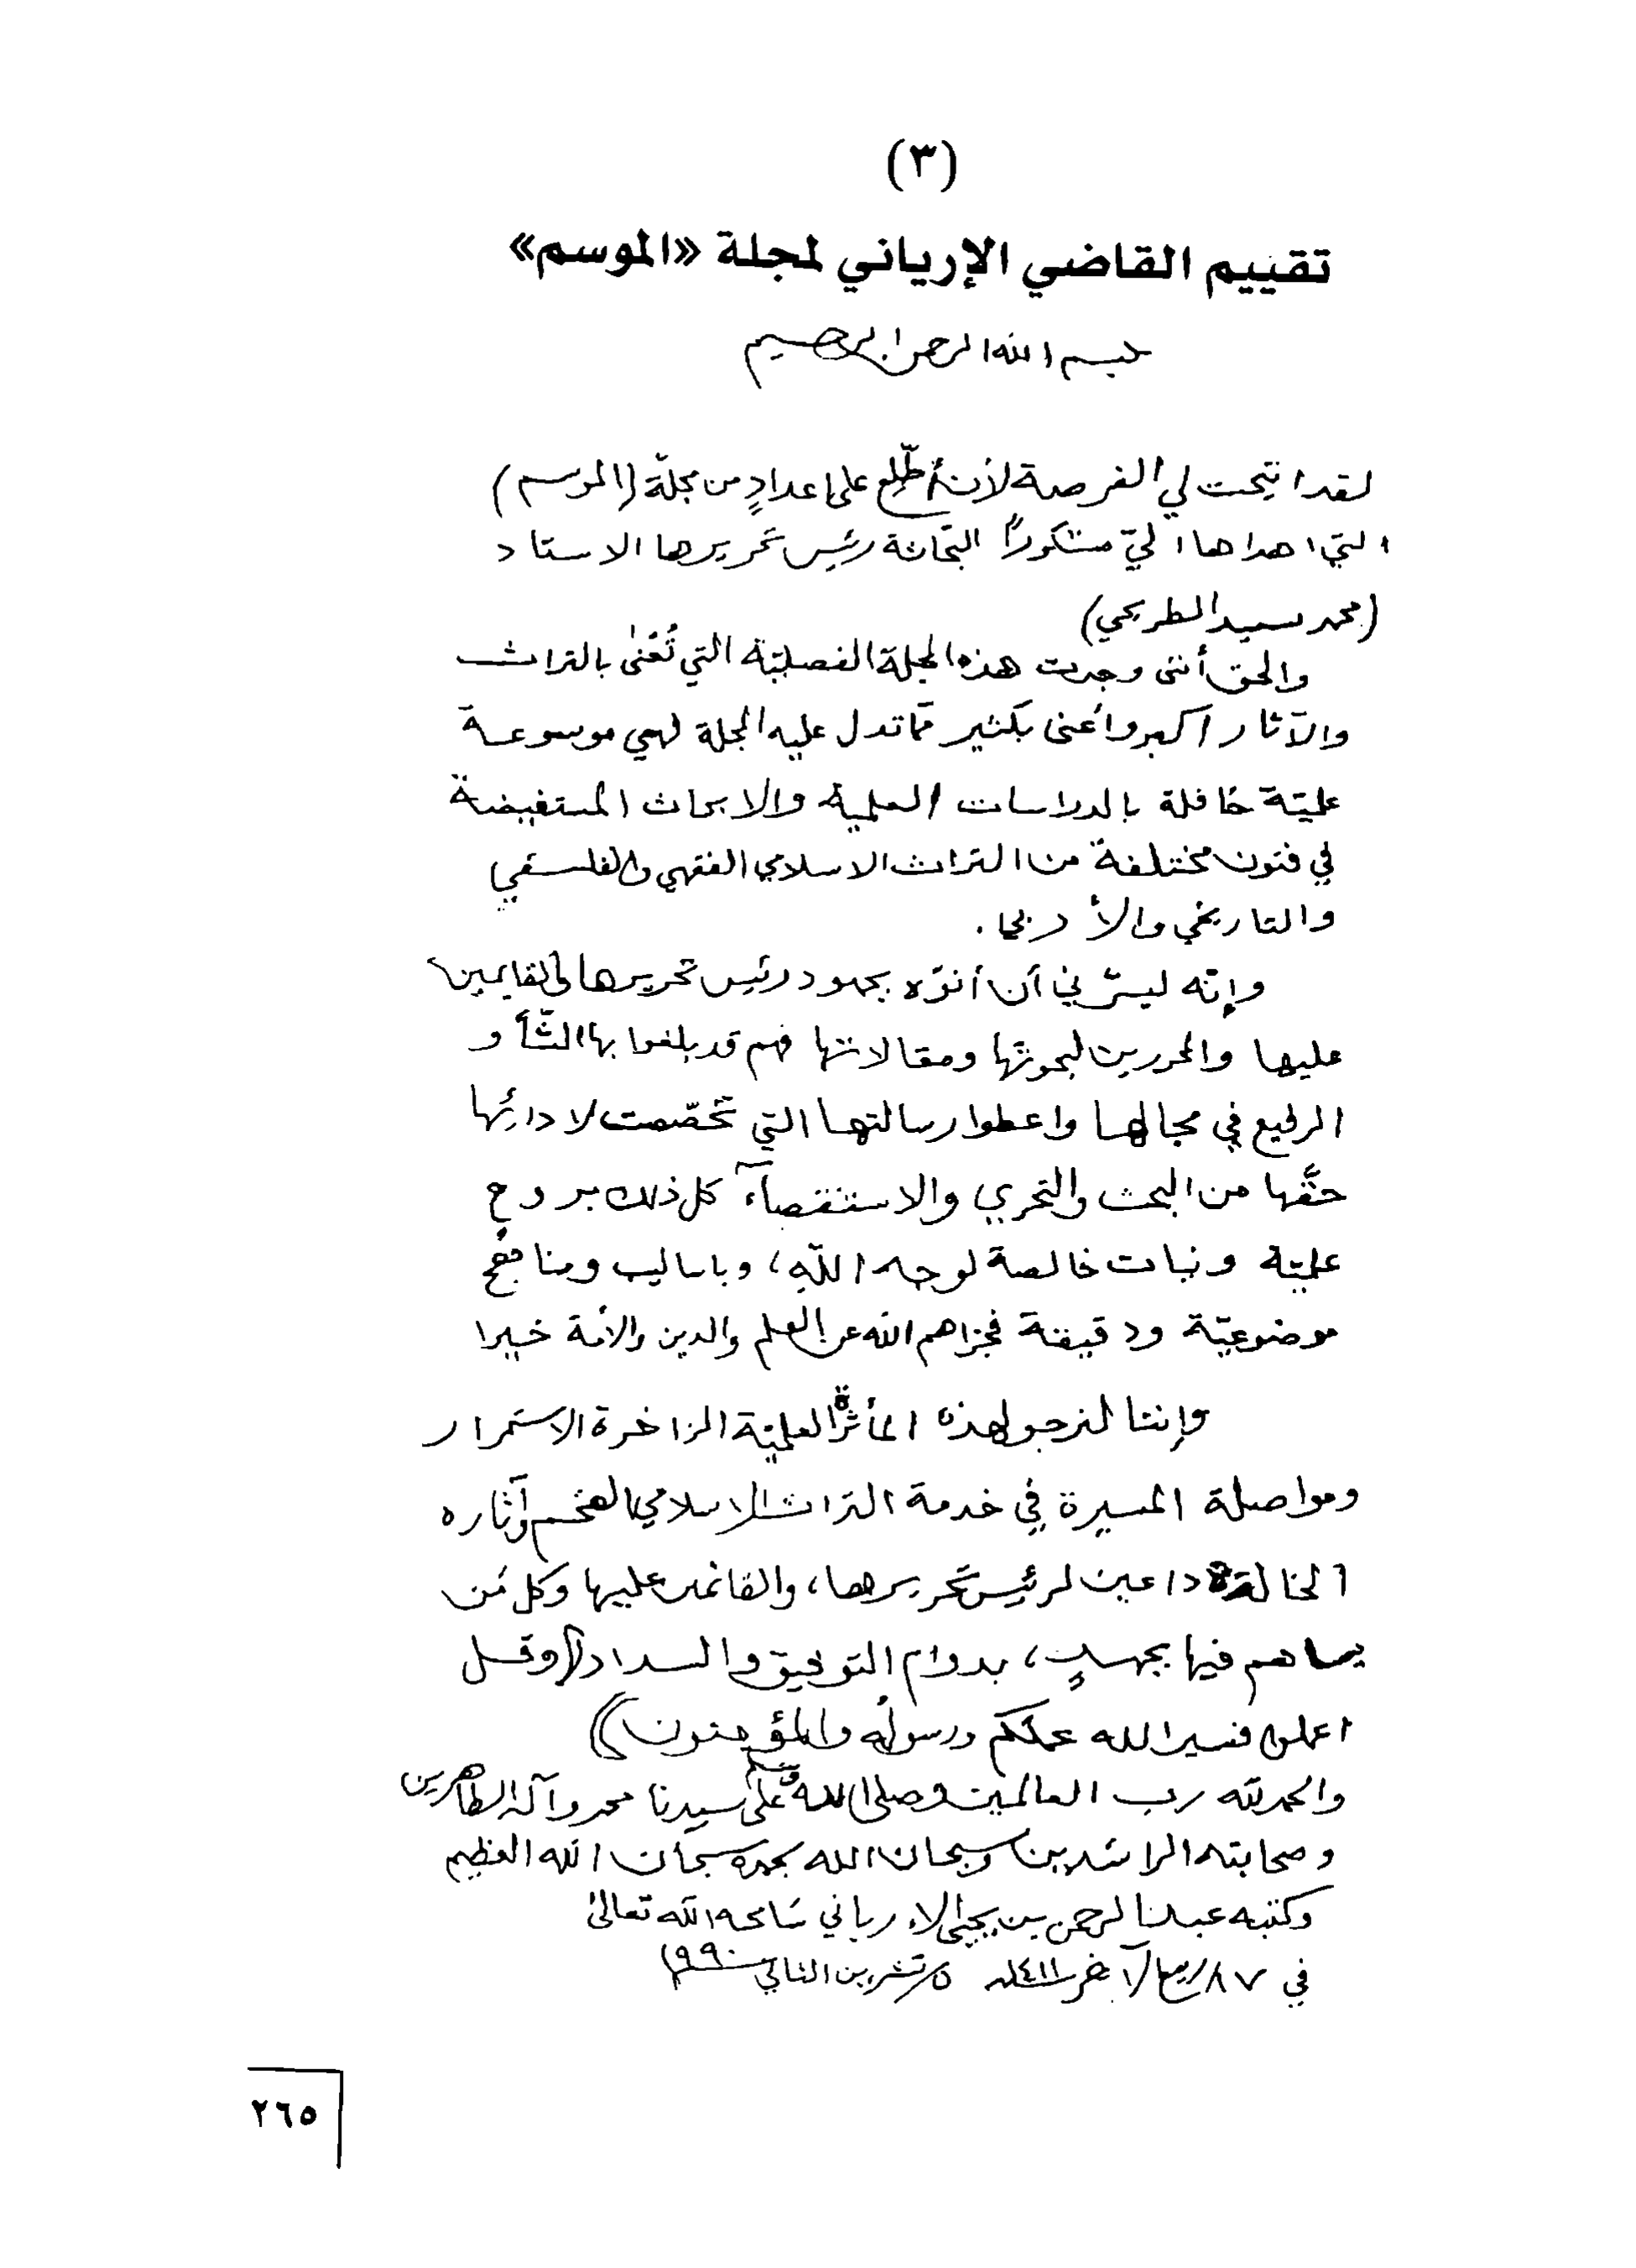 (٣)
تقييم القاضي الإرياني لمجلة «الموسم»
بسم الله الرحمن الرحيم
لقد اتيحت لي الفرصة لأن أطّلع على اعدادٍ من مجلّة (الموسم)
التي اهداها اليّ مشكوراً البحّاثة رئيس تحريرها الاستاد
(محمد سعيد الطريحي)
والحق أنني وجدت هذه المجلة الفصليّة التي تُعْنى بالتراث
والآثار أكبر وأغنى بكثير ممّا تدل عليه المجلة فهي موسوعة
علميّة حافلة بالدراسات العلمية والابحاث المستفيضة
في فنون مختلفة من التراث الاسلامي الفقهي والفلسفي
والتاريخي والأدبي.
وإنّه ليسرّني أن أنوّه بجهود رئيس تحريرها والقايمين
عليها والمحررين لبحوثها ومقالاتها فهم قد بلغوا بها الشّأو
الرفيع في مجالها واعطوا رسالتها التي تخصّصت لادائها
حقّها من البحث والتحري والاستقصآء كل ذلك بروح
علميّة ونيات خالصة لوجه اللّه، وباساليب ومناهج
موضوعيّة ودقيقة فجزاهم الله عن العلم والدين والأمة خيرا
وإننا لنرجو لهذه المأثرة العلميّة الزاخرة الاستمرار
ومواصلة المسيرة في خدمة التراث الاسلامي الضخم وآثاره
الخالدة داعين لرئيس تحريرها، والقائمين عليها وكل مَن
يساهم فيها بجهدٍ، بدوام التوفيق والسداد ((وقل
اعملوا فسيرا الله عملكم ورسولُه والمؤمنون))
والحمد لله رب العالمين وصلى الله وسلم على سيدنا محمد وآله الطاهرين
وصحابته الراشدين وسبحان الله بحمده سبحان الله العظيم
وكتبه عبد الرحمن بن يحيى الارياني سَامحه الله تعالى
في ربيع الآخر ١٤١١هـ ٥ تشرين الثاني ١٩٩٠م
٢٦٥